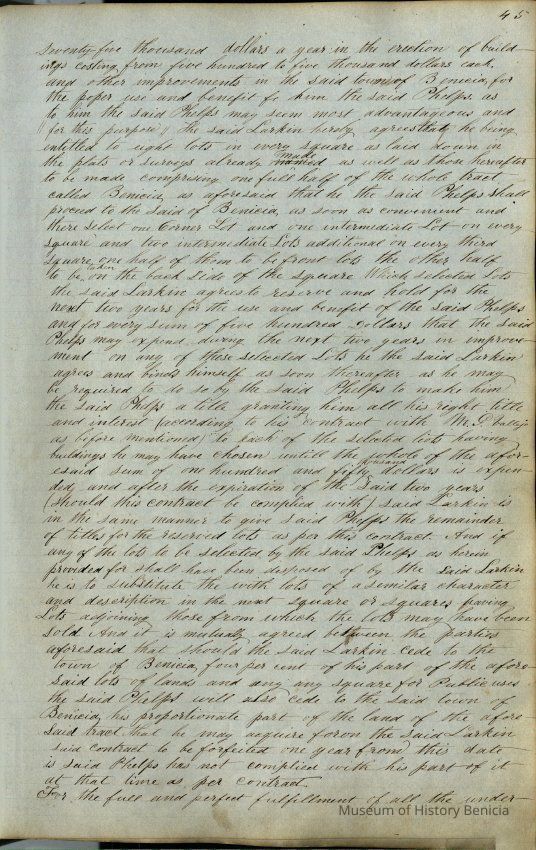 45
Seventy-five thousand dollars a year in the erection of build-
ings costing from five hundred to five thousand dollars each
and other improvements in the said town of Benicia, for
the poper use and benefit fo him the said Phelps. as
to him the said Phelps may seem most advantageous and
for his purpose, the said Larkin hereby agrees that he being
intitled to eight lots in every square as laid down in
the plats or surveys already made as well as those hereafter
to be made comprising one full half of the whole tract
called Benicia, as aforesaid that he the said Phelps shall
proceed to the said of Benicia, as soon as convenient and
there select one Corner Lot and one intermediate Lot on every
square and two intermediate Lots additional on every third
square, one half of them to be front lots the other half
to be taken on the back side of the square Which selected Lots
the said Larkin agrees to reserve and hold for the
next two years for the use and benefit of the said Phelps
and for every sum of five hundred Dollars that the said
Phelps may expend during the next two years in improve-
ment on any of these selected Lots he the said Larkin
agrees and binds himself as soon thereafter as he may
be required to do so by the said Phelps to make him
the said Phelps a title granting him all his right title
and interest (according to his contract with M. G. Vallejo
as before mentioned) to each of the selected lots having
buildings he may have chosen untill the whole of the afor-
esaid sum of one hundred and fifty thousand dollars is expen-
ded, and after the expiration of the said two years
(should this contract be complied with) said Larkin is
in the same manner to give said Phelps the remainder
of titles for the reserved lots as per this contract. And if
any of the lots to be selected by the said Phelps as herein
provided for shall have been disposed of by the said Larkin
he is to substitute the with lots of a similar character
and description in the next square or squares having
Lots adjoining those from which the lots may have been
sold. And it is mutualy agreed between the parties
aforesaid that should the said Larkin cede to the
town of Benicia, four per cent of his part of the afore-
said lots of lands and any any square for Public uses
the said Phelps will also cede to the said town of
Benicia, his proportionate part of the land of the afore-
said tract that he may acquire from the said Larkin
said contract to be forfeited one year from this date
is said Phelps has not complied with his part of it
at that time as per contract.
For the full and perfect fulfillment of all the under-
Museum of History Benicia